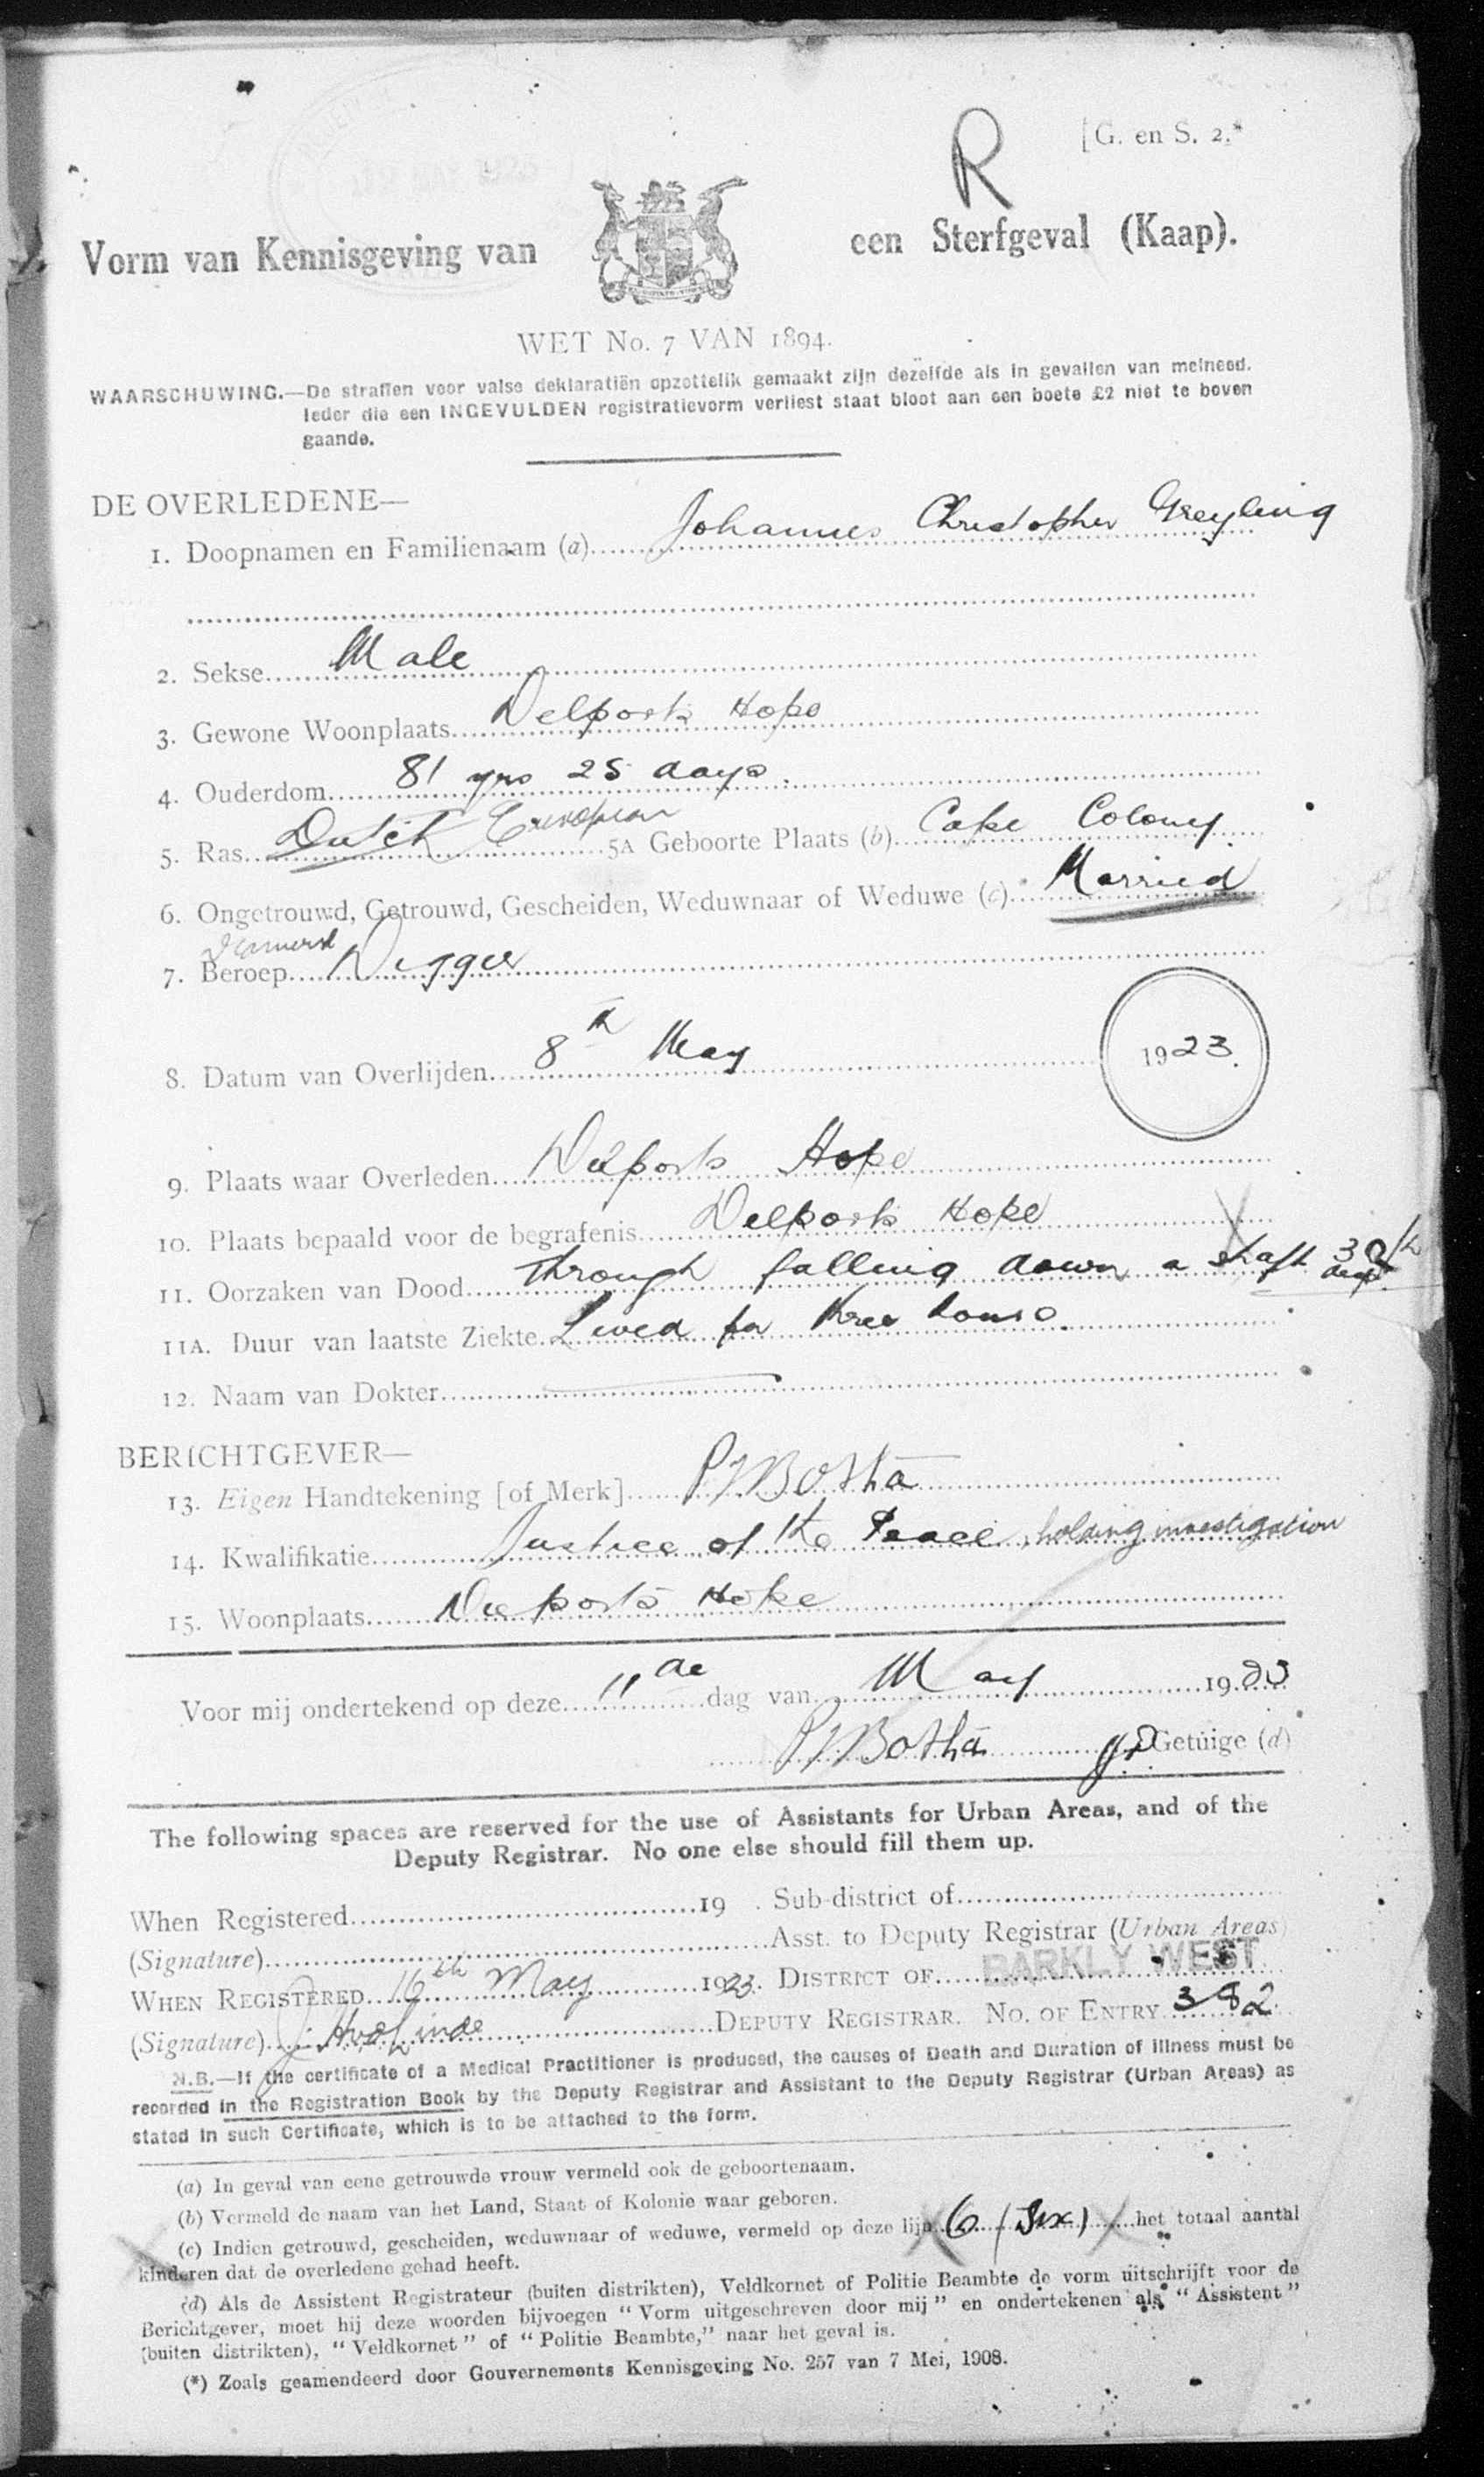 R
[G. en S. 2.*
Vorm van Kennisgeving van een Sterfgeval (Kaap).
WET No. 7 VAN 1894.
WAARSCHUWING.—De straffen voor valse deklaratiën opzettelik gemaakt zijn dezelfde als in gevallen van meineed.
Ieder die een INGEVULDEN registratievorm verliest staat bloot aan een boete £2 niet te boven
gaande.
DE OVERLEDENE—
1. Doopnamen en Familienaam (a) Johannes Christopher Greyling
2. Sekse Male
3. Gewone Woonplaats Delports Hope
4. Ouderdom 81 yrs 25 days.
5. Ras Dutch European 5A Geboorte Plaats (b) Cape Colony
6. Ongetrouwd, Getrouwd, Gescheiden, Weduwnaar of Weduwe (c) Married
7. Beroep Diamond Digger
8. Datum van Overlijden 8th May 1923.
9. Plaats waar Overleden Delports Hope
10. Plaats bepaald voor de begrafenis Delports Hope
11. Oorzaken van Dood Through falling down a shaft 30 ft deep
11A. Duur van laatste Ziekte Lived for three hours.
12. Naam van Dokter
BERICHTGEVER—
13. Eigen Handtekening [of Merk] Botha
14. Kwalifikatie Justice of the Peace, holding investigation
15. Woonplaats Delports Hope
Voor mij ondertekend op deze 11de dag van May 1923
Botha J.P. Getuige (d)
The following spaces are reserved for the use of Assistants for Urban Areas, and of the
Deputy Registrar. No one else should fill them up.
When Registered 19 . Sub-district of
(Signature) Asst. to Deputy Registrar (Urban Areas)
WHEN REGISTERED 16th May 1923. DISTRICT OF BARKLY WEST
(Signature) DEPUTY REGISTRAR. NO. OF ENTRY 382
N.B.—If the certificate of a Medical Practitioner is produced, the causes of Death and Duration of Illness must be
recorded in the Registration Book by the Deputy Registrar and Assistant to the Deputy Registrar (Urban Areas) as
stated in such Certificate, which is to be attached to the form.
(a) In geval van eene getrouwde vrouw vermeld ook de geboortenaam.
(b) Vermeld de naam van het Land, Staat of Kolonie waar geboren.
(c) Indien getrouwd, gescheiden, weduwnaar of weduwe, vermeld op deze lijn 6 (Six) het totaal aantal
kinderen dat de overledene gehad heeft.
(d) Als de Assistent Registrateur (buiten distrikten), Veldkornet of Politie Beambte de vorm uitschrijft voor de
Berichtgever, moet hij deze woorden bijvoegen “Vorm uitgeschreven door mij” en ondertekenen als “Assistent”
(buiten distrikten), “Veldkornet” of “Politie Beambte,” naar het geval is.
(*) Zoals geamendeerd door Gouvernements Kennisgeving No. 257 van 7 Mei, 1908.